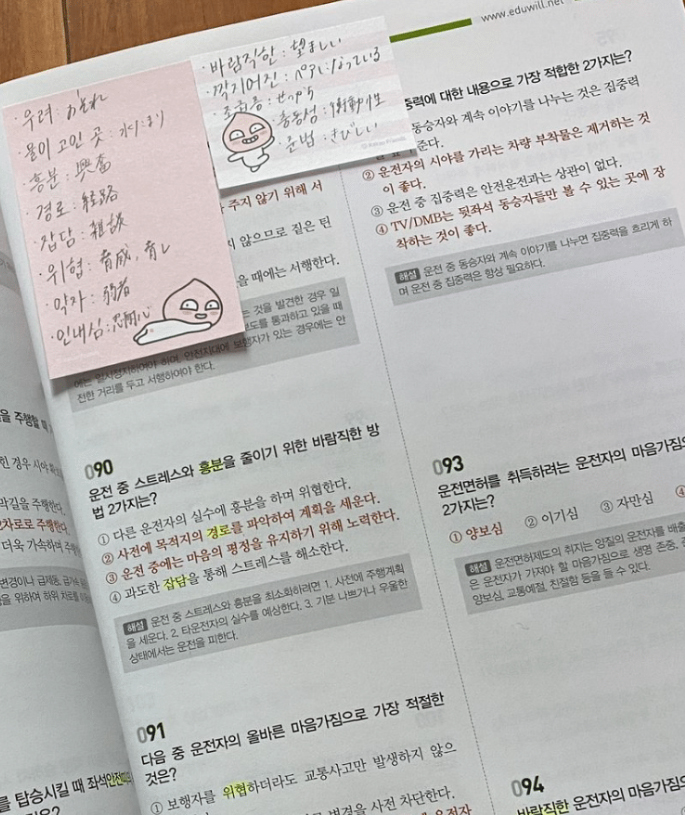 www.eduwill.net
· 우려 : おそれ
· 물이 고인 곳 : 水たまり
· 흥분 : 興奮
· 경로 : 経路
· 잡담 : 雑談
· 위협 : 脅威, 脅し
· 약자 : 弱者
· 인내심 : 忍耐心
· 바람직한 : 望ましい
· 짝지어진 : ペアになっている
· 조급증 : せっかち
· 충동성 : 衝動性
© Kakao Friends
주지 않기 위해 서
않으므로 짙은 틴
을 때에는 서행한다.
는 것을 발견한 경우 일
도를 통과하고 있을 때
에는 일시정지하여야 하며, 안전지대에 보행자가 있는 경우에는 안
전한 거리를 두고 서행하여야 한다.
090
운전 중 스트레스와 흥분을 줄이기 위한 바람직한 방
법 2가지는?
① 다른 운전자의 실수에 흥분을 하며 위협한다.
② 사전에 목적지의 경로를 파악하여 계획을 세운다.
③ 운전 중에는 마음의 평정을 유지하기 위해 노력한다.
④ 과도한 잡담을 통해 스트레스를 해소한다.
해설 운전 중 스트레스와 흥분을 최소화하려면 1. 사전에 주행계획
을 세운다. 2. 타운전자의 실수를 예상한다. 3. 기분 나쁘거나 우울한
상태에서는 운전을 피한다.
091
다음 중 운전자의 올바른 마음가짐으로 가장 적절한
것은?
① 보행자를 위협하더라도 교통사고만 발생하지 않으
변경을 사전 차단한다.
중력에 대한 내용으로 가장 적합한 2가지는?
동승자와 계속 이야기를 나누는 것은 집중력
준다.
② 운전자의 시야를 가리는 차량 부착물은 제거하는 것
이 좋다.
③ 운전 중 집중력은 안전운전과는 상관이 없다.
④ TV/DMB는 뒷좌석 동승자들만 볼 수 있는 곳에 장
착하는 것이 좋다.
해설 운전 중 동승자와 계속 이야기를 나누면 집중력을 흐리게 하
며 운전 중 집중력은 항상 필요하다.
093
운전면허를 취득하려는 운전자의 마음가짐으
2가지는?
① 양보심 ② 이기심 ③ 자만심 ④
해설 운전면허제도의 취지는 양질의 운전자를 배출
은 운전자가 가져야 할 마음가짐으로 생명 존중,
양보심, 교통예절, 친절함 등을 들 수 있다.
094
바람직한 운전자의 마음가짐으
를 탑승시킬 때 좌석안전띠